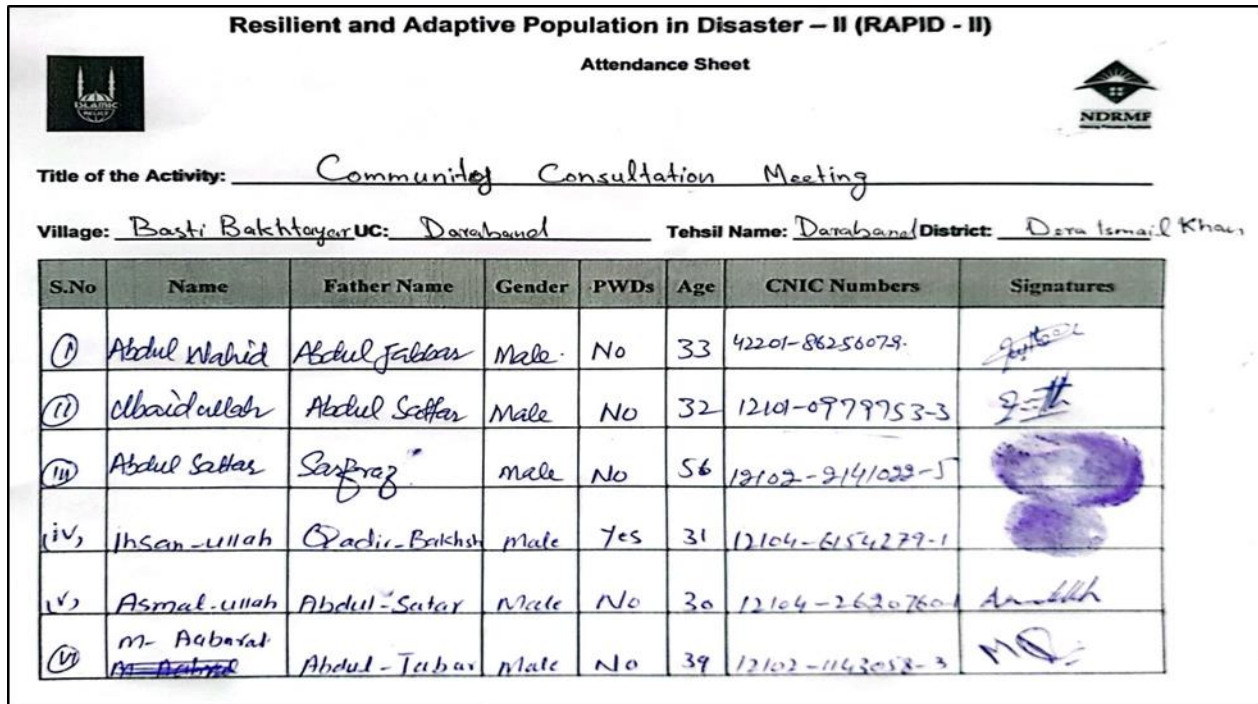 Resilient and Adaptive Population in Disaster – II (RAPID - II)
Attendance Sheet
ISLAMIC
RELIEF
NDRMF
Title of the Activity: Community Consultation Meeting
Village: Basti Bakhtayar UC: Daraband Tehsil Name: Daraband District: Dera Ismail Khan
S.No Name Father Name Gender PWDs Age CNIC Numbers Signatures
(i) Abdul Wahid Abdul Jabbar Male. No 33 42201-86256079.
(ii) Obaidullah Abdul Sattar Male No 32 12101-0979753-3
(iii) Abdul Sattar Sarfraz Male No 56 12102-2141022-5
(iv) Ihsan-ullah Qadir-Bakhsh Male Yes 31 12104-6154279-1
(v) Asmat-ullah Abdul-Satar Male No 30 12104-26207601
(vi) M- Abdul-Jabar Male No 39 12102-1143058-3